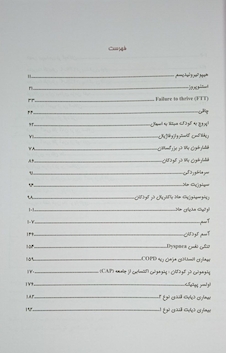 فهرست
هیپوتیروئیدیسم ۱۱
استئوپروز ۲۱
Failure to thrive (FTT) ۳۳
چاقی ۴۴
اپروچ به کودک مبتلا به اسهال ۶۲
ریفلاکس گاستروازوفاژیال ۷۱
فشارخون بالا در بزرگسالان ۷۸
فشارخون بالا در کودکان ۸۶
سرماخوردگی ۹۱
سینوزیت حاد ۹۴
رینوسینوزیت حاد باکتریال در کودکان ۹۸
اوتیت مدیای حاد ۱۰۱
آسم ۱۰۷
آسم کودکان ۱۳۶
تنگی نفس Dyspnea ۱۵۴
بیماری انسدادی مزمن ریه COPD ۱۵۹
پنومونی در کودکان - پنومونی اکتسابی از جامعه (CAP) ۱۷۰
اولسر پپتیک ۱۷۶
بیماری دیابت قندی نوع ۲ ۱۸۲
بیماری دیابت قندی نوع ۱ ۱۹۲